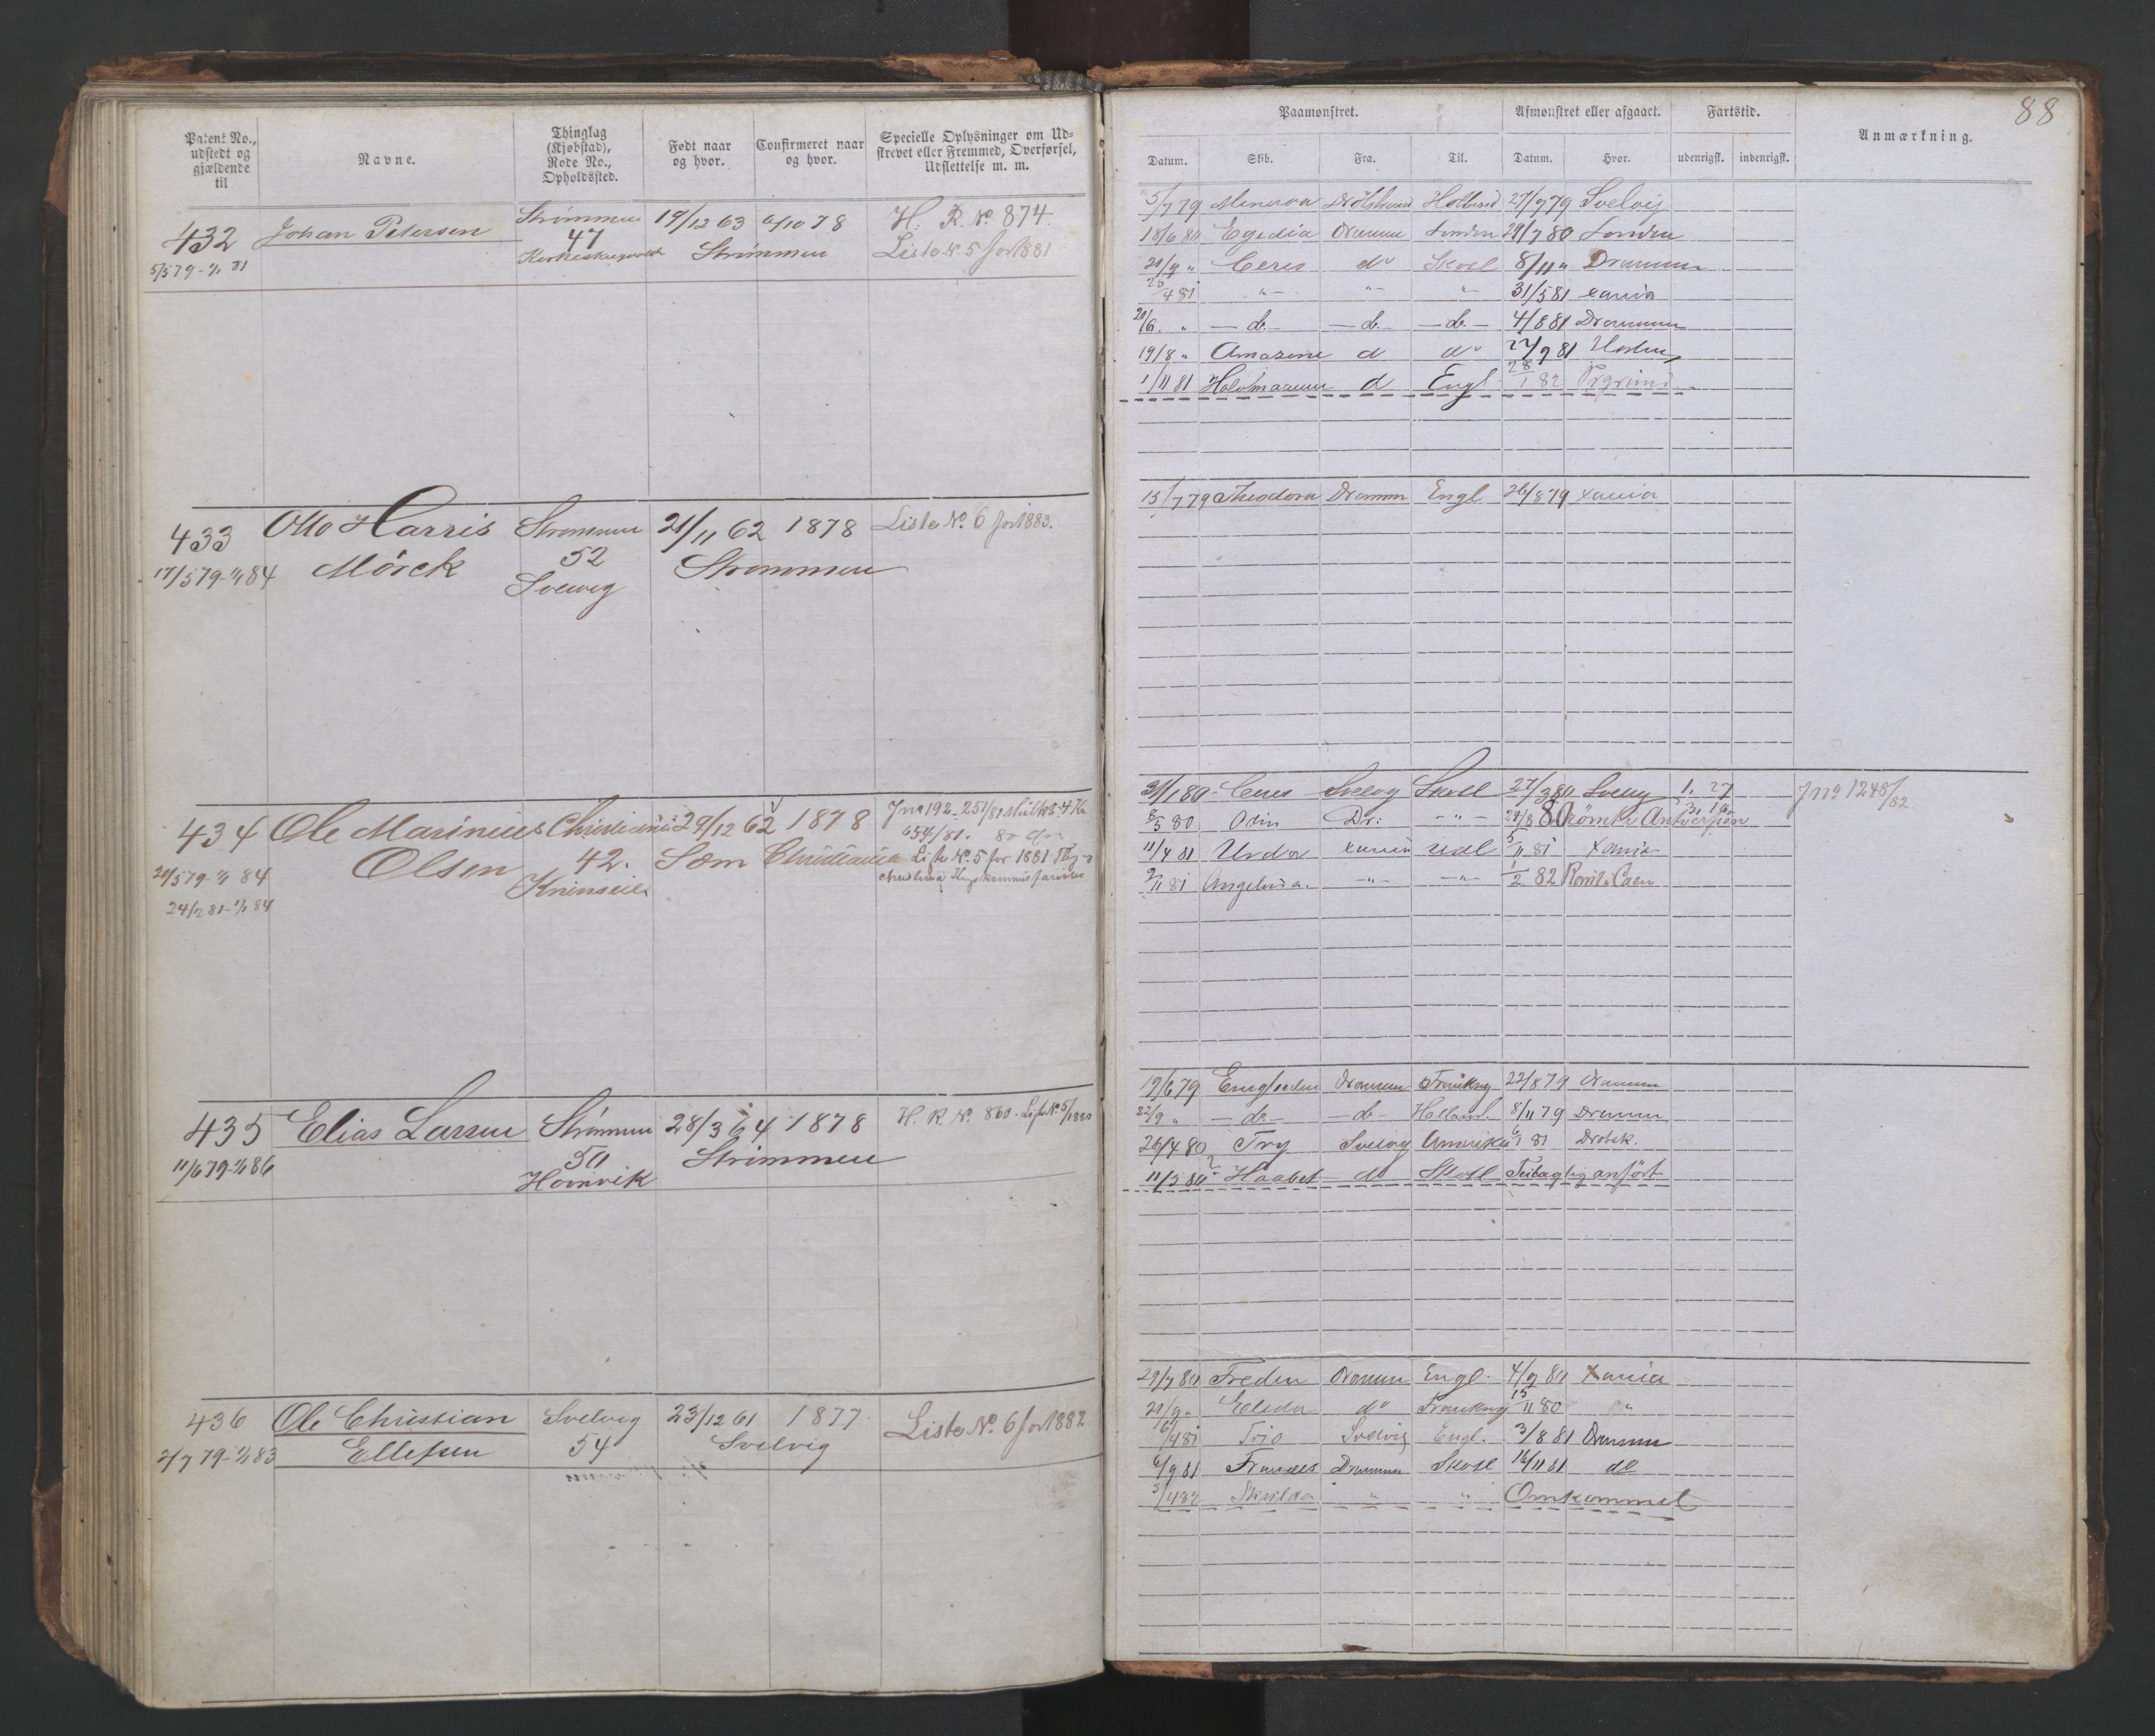 Patent No.,
udstedt og
gjældende
til
Navne.
Thinglag
(Kjøbstad),
Rode No.,
Opholdssted.
Født naar
og hvor.
Confirmeret naar
og hvor.
Specielle Oplysninger om Ud-
skrevet eller Fremmed, Overførsel,
Udslettelse m. m.
432
5/5 79 - 1/1 81
Johan Petersen
Strømmen
47
19/12 63
6/10 78
Strømmen
H. R. No. 874
Liste No. 5 for 1881
433
17/5 79 - 1/1 84
Otto Harris
Mörck
Strømmen
52
Svelvig
21/11 62
1878
Strømmen
Liste No. 6 for 1883.
434
29/5 79 - 1/1 84
24/2 81 - 1/1 84
Ole Marinius
Olsen
Christiania
42.
29/12 62
1878
Sæm
Christiania
Jno 192 - 251/81
654/81.
Liste No. 5 for 1881
435
11/6 79 - 1/1 86
Elias Larsen
Strømmen
50
Homvik
28/3 64
1878
Strømmen
H. R. No. 860 - Liste No. 5/1880
436
2/7 79 - 1/1 83
Ole Christian
Ellefsen
Svelvig
54
23/12 61
1877
Svelvig
Liste No. 6 for 1882
88
Paamønstret.
Afmønstret eller afgaaet.
Fartstid.
Anmærkning.
Datum.
Skib.
Fra.
Til.
Datum.
Hvor.
udenrigsk.
indenrigsk.
5/7 79 Minerva Holland 27/9 79 Svelvig
18/6 80 Egedia Drammen London 29/7 80 London
21/9 " Ceres do Skotl 8/11 " Drammen
23/4 81 " " " 31/5 81 Xania
20/6 " - do - - do - - do - 4/8 81 Drammen
19/8 " Amazone d do 27/9 81
1/11 81 d Engl 28/1 82
15/7 79 Theodora Drammen Engl 26/8 79 Xania
31/1 80 Ceres Svelvig Skotl 27/3 80 Svelvig 1. 27 Jno 1248/82
8/5 80 Odin Dr: - " - 24/8 80 Rømte Antwerpen
11/4 81 Urda Xania Udl 5/11 81 Xania
9/11 81 Angelina. - " - - " - 1/2 82 Rømt i Caen
19/6 79 Drammen Frankrig 22/8 79 Drammen
22/9 " - do - - do - Holland. 8/11 79 Drammen
26/4 80 Try Svelvig Amerika 6/1 81 Drøbak.
11/5 80 ? Haabet do Skotl Feilagtig anført
29/7 80 Freden Drammen Engl. 4/9 80 Xania
21/9 " Elida do Frankrig 15/11 80 "
16/4 81 Trio Svelvig Engl. 3/8 81 Drammen
6/9 81 Frances Drammen Skotl 16/11 81 do
3/4 82 " " Omkommet